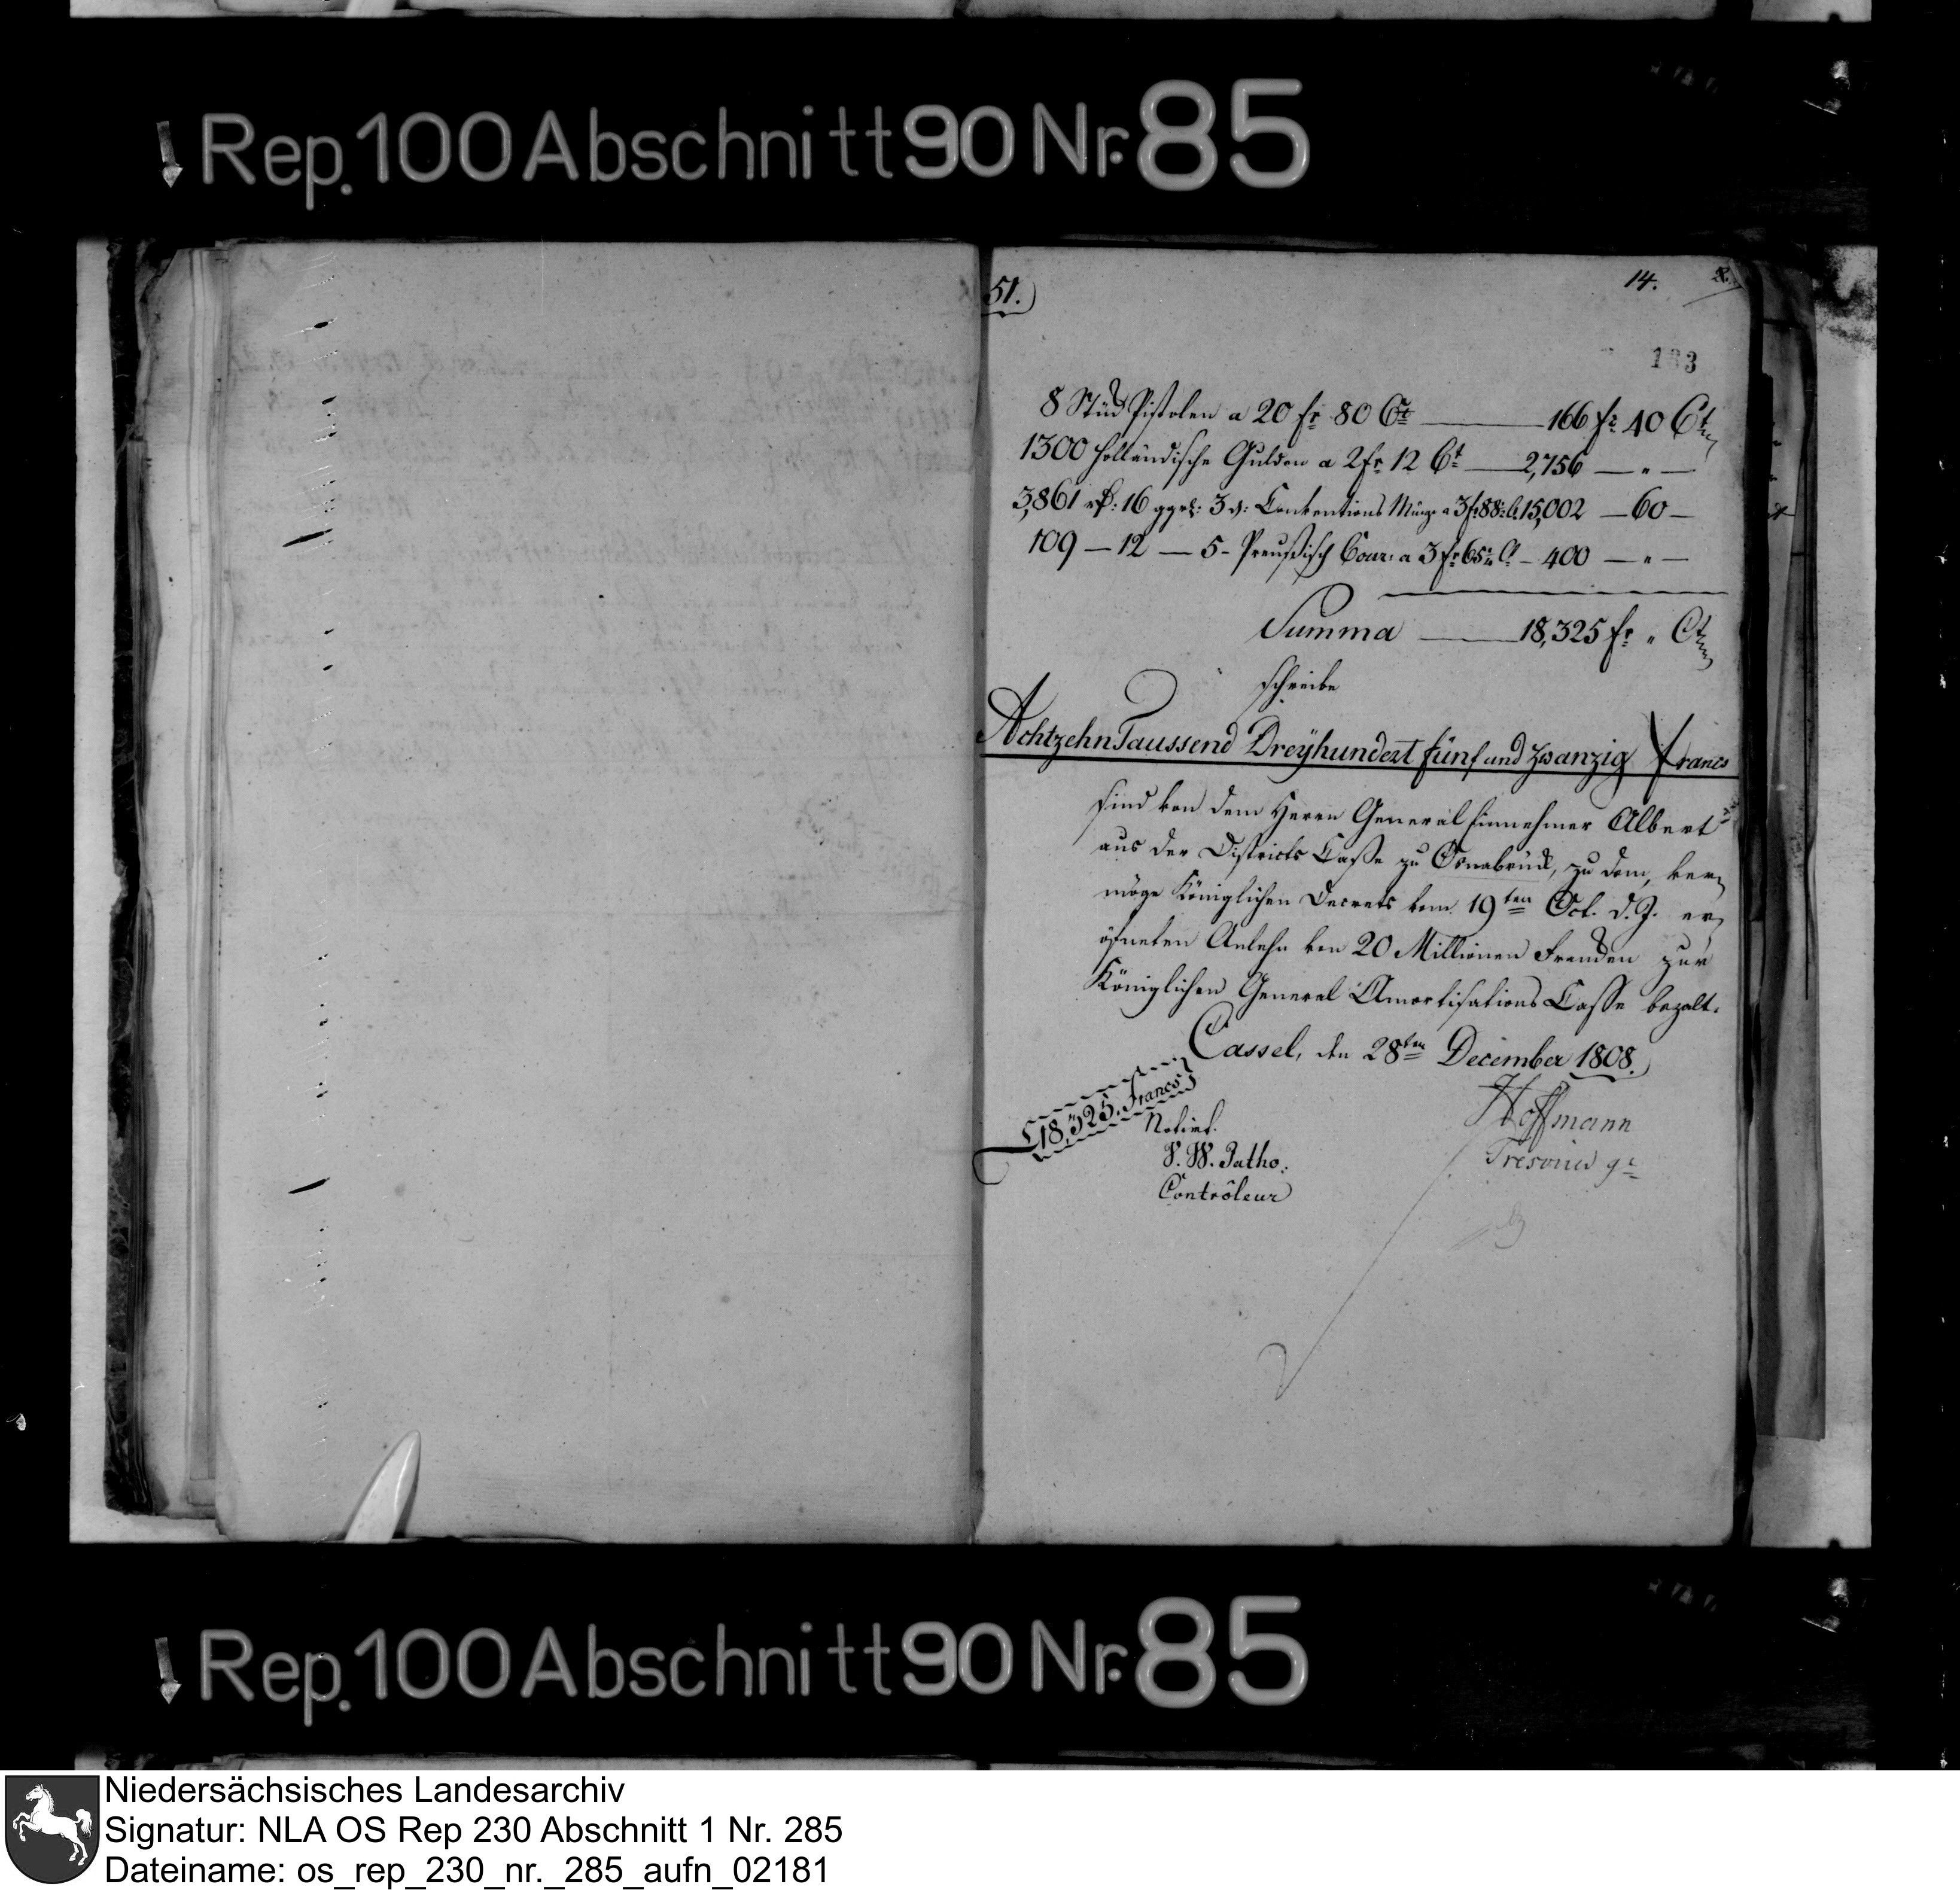 Rep. 100 Abschnitt 90 Nr. 85
51.)
14.
133
8 Stück Pistolen a 20 fr 80 Ct — 166 fr 40 Ct
1300 holländische Gulden a 2 fr 12 Ct — 2,756 — " —
3,861 rthl: 16 ggr: 3 d: Conventions Münze a 3 fr 88 Ct 15,002 — 60 —
109 — 12 — 5 - Preußisch Cour: a 3 fr 65 Ct — 400 — " —
Summa — 18,325 fr " Ct
schreibe
Achtzehn Taussend Dreyhundert fünf und zwanzig francs
sind von dem Herrn General Einnehmer Albert
aus der Districts Casse zu Osnabrück, zu dem, ver-
möge Königlichen Decrets vom 19ten Oct. d. J. er-
öfneten Anlehn von 20 Millionen Francken zur
Königlichen General Amortisations Casse bezalt.
Cassel, den 28ten December 1808.
18,325. Francs
Notirt.
V. W. Patho.
Contrôleur
Hoffmann
Tresorier gl
Rep. 100 Abschnitt 90 Nr. 85
Niedersächsisches Landesarchiv
Signatur: NLA OS Rep 230 Abschnitt 1 Nr. 285
Dateiname: os_rep_230_nr._285_aufn_02181